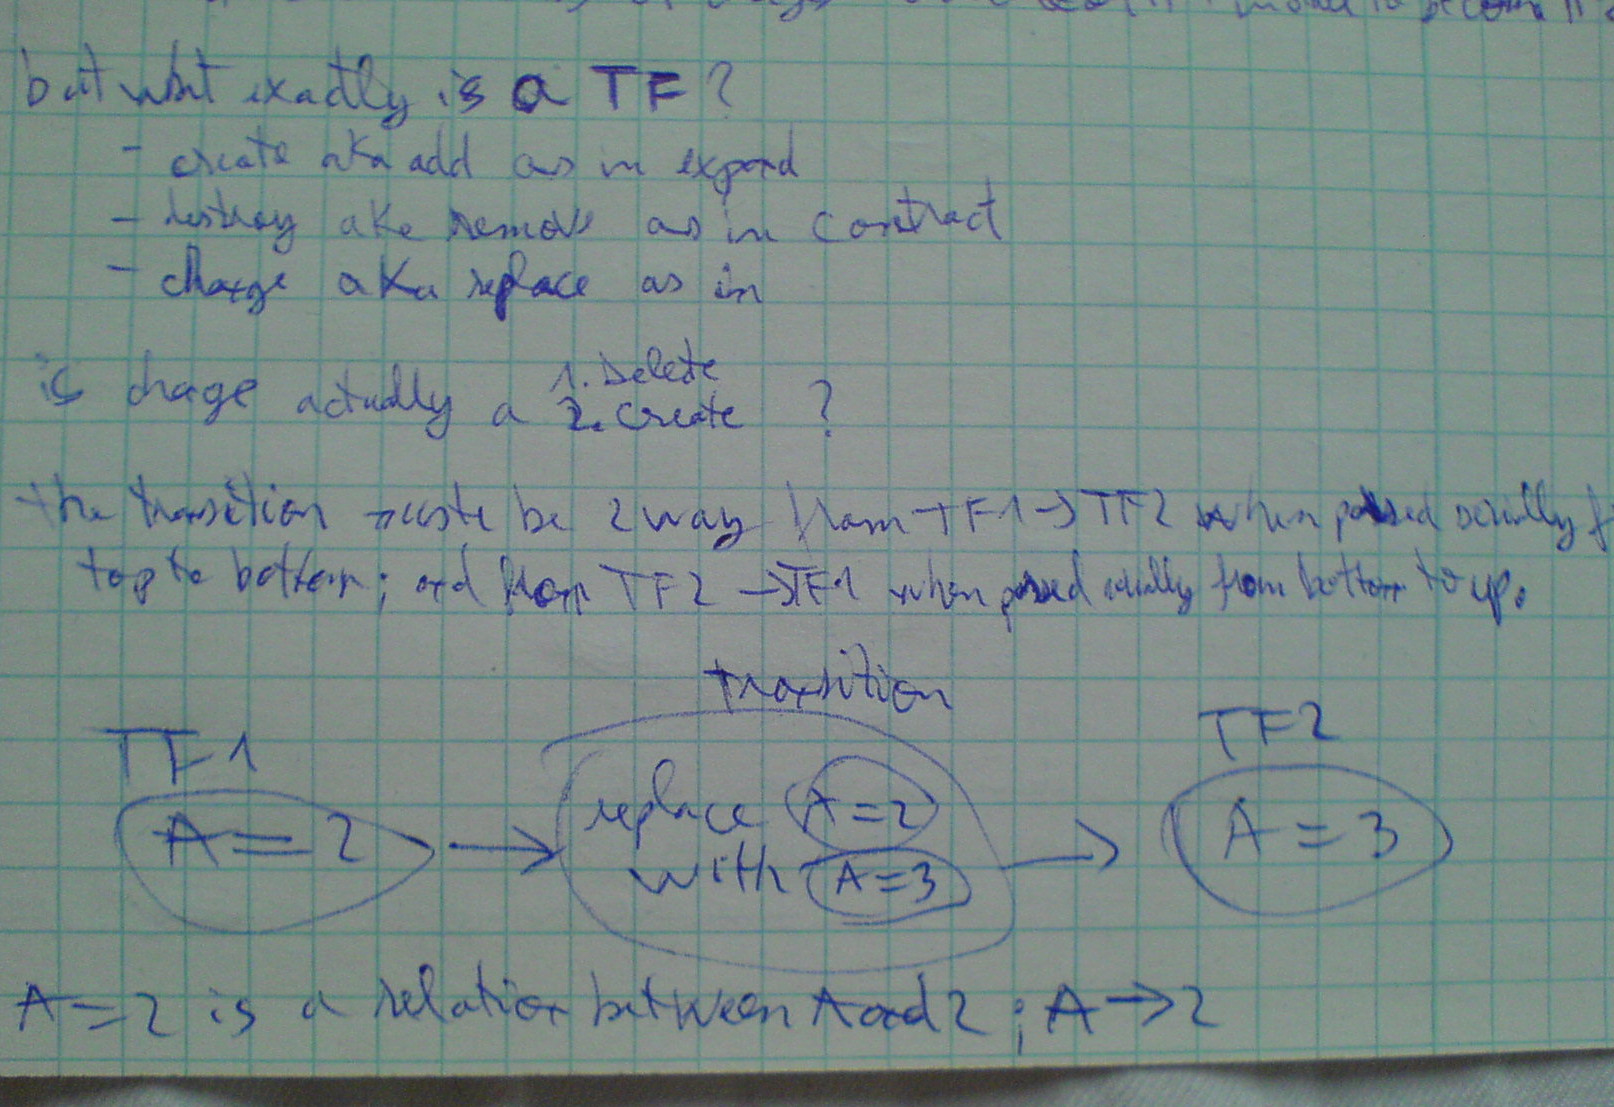 but what exactly is a TF?
- create aka add as in expand
- destroy aka remove as in contract
- change aka replace as in
is chage actually a 1. Delete
2. Create ?
the transition be 2 way from TF1 → TF2 when parsed serially
top to bottom; and from TF2 → TF1 when parsed serially from bottom to up.
transition
TF1
TF2
A = 2
replace A=2
with A=3
A = 3
A=2 is a relation between A and 2 ; A → 2